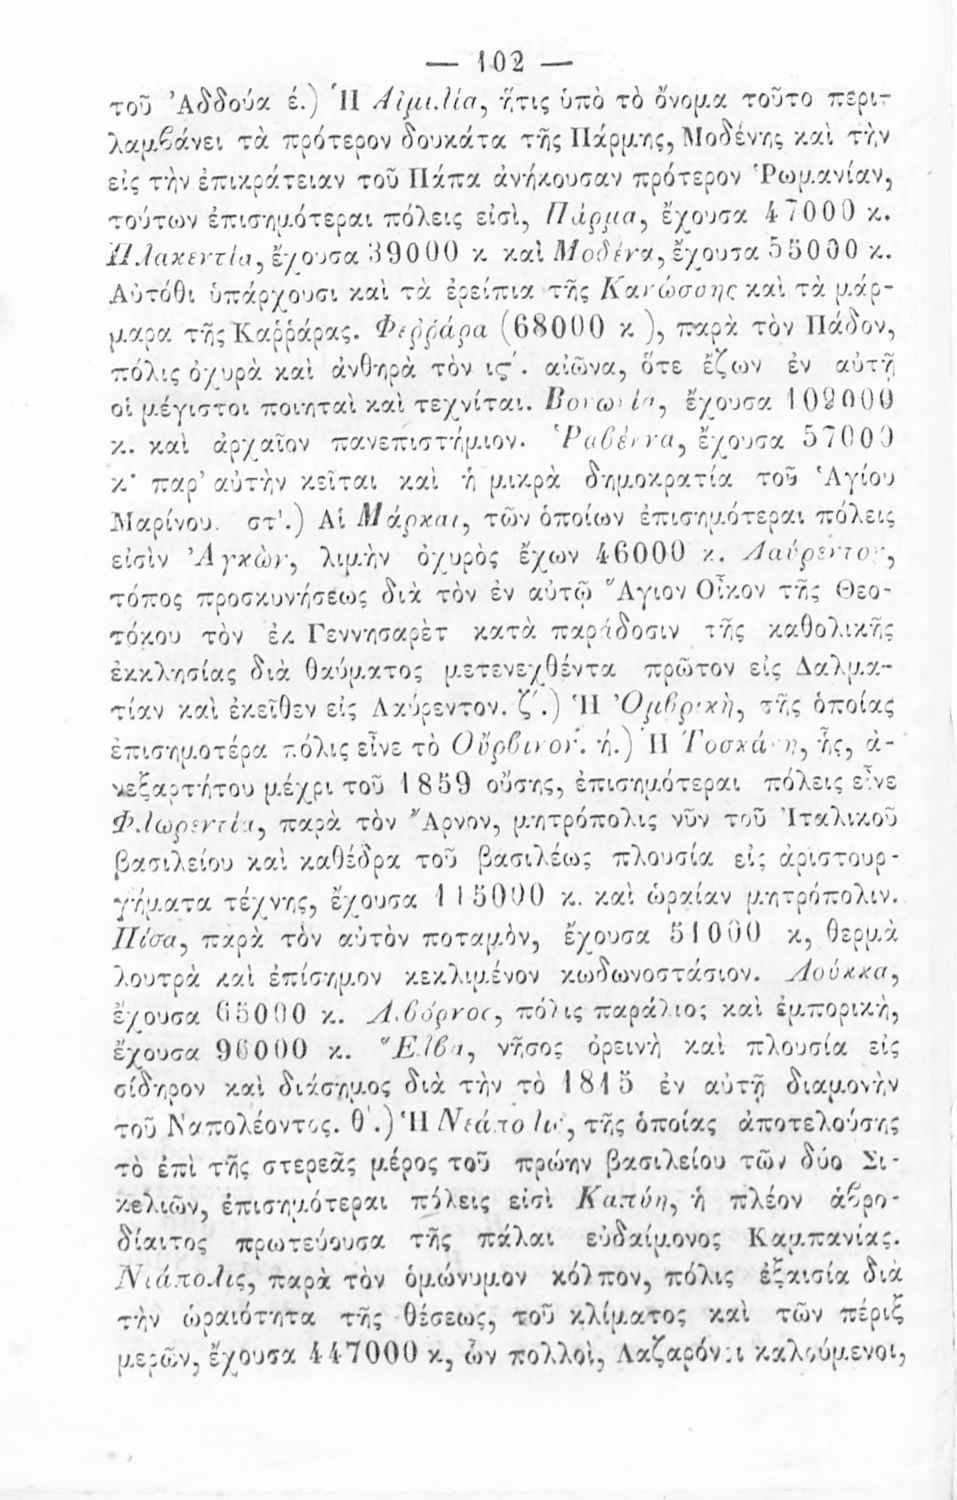 — 102 —
τοῦ Ἀδδούα έ.) Ἡ Αἰμιλία, ἥτις ὑπὸ τὸ ὄνομα τοῦτο περι-
λαμβάνει τὰ πρότερον δουκάτα τῆς Πάρμης, Μοδένης καὶ τὴν
εἰς τὴν ἐπικράτειαν τοῦ Πάπα ἀνήκουσαν πρότερον Ῥωμανίαν,
τούτων ἐπισημότεραι πόλεις εἰσὶ, Πάρμα, ἔχουσα 47000 κ.
Πλακεντία, ἔχουσα 39000 κ. καὶ Μοδένα, ἔχουσα 55000 κ.
Αὐτόθι ὑπάρχουσι καὶ τὰ ἐρείπια τῆς Κανώσσης καὶ τὰ μάρ-
μαρα τῆς Καῤῥάρας. Φεῤῥάρα (68000 κ ), παρὰ τὸν Πάδον,
πόλις ὀχυρὰ καὶ ἀνθηρὰ τὸν ις΄. αἰῶνα, ὅτε ἔζων ἐν αὐτῇ
οἱ μέγιστοι ποιηταὶ καὶ τεχνίται. Βονωνία, ἔχουσα 109000
κ. καὶ ἀρχαῖον πανεπιστήμιον. Ῥαβέννα, ἔχουσα 57000
κ· παρ’ αὐτὴν κεῖται καὶ ἡ μικρὰ δημοκρατία τοῦ Ἁγίου
Μαρίνου. στ'.) Αἱ Μάρκαι, τῶν ὁποίων ἐπισημότεραι πόλεις
εἰσὶν Ἀγκὼν, λιμὴν ὀχυρὸς ἔχων 46000 κ. Λαύρεντον,
τόπος προσκυνήσεως διὰ τὸν ἐν αὐτῷ Ἅγιον Οἶκον τῆς Θεο-
τόκου τὸν ἐκ Γεννησαρὲτ κατὰ παράδοσιν τῆς καθολικῆς
ἐκκλησίας διὰ θαύματος μετενεχθέντα πρῶτον εἰς Δαλμα-
τίαν καὶ ἐκεῖθεν εἰς Λαύρεντον. ζ΄.) Ἡ Ὀμβρικὴ, τῆς ὁποίας
ἐπισημοτέρα πόλις εἶνε τὸ Οὔρβινον. ή.) Ἡ Τοσκάνη, ἧς, ἀ-
νεξαρτήτου μέχρι τοῦ 1859 οὔσης, ἐπισημότεραι πόλεις εἶνε
Φλωρεντία, παρὰ τὸν Ἄρνον, μητρόπολις νῦν τοῦ Ἰταλικοῦ
βασιλείου καὶ καθέδρα τοῦ βασιλέως πλουσία εἰς ἀριστουρ-
γήματα τέχνης, ἔχουσα 115000 κ. καὶ ὡραίαν μητρόπολιν.
Πίσα, παρὰ τὸν αὐτὸν ποταμὸν, ἔχουσα 51000 κ, θερμὰ
λουτρὰ καὶ ἐπίσημον κεκλιμένον κωδωνοστάσιον. Λούκκα,
ἔχουσα 65000 κ. Λιβόρνος, πόλις παράλιος καὶ ἐμπορικὴ,
ἔχουσα 96000 κ. Ἔλβα, νῆσος ὀρεινὴ καὶ πλουσία εἰς
σίδηρον καὶ διάσημος διὰ τὴν τὸ 1815 ἐν αὐτῇ διαμονὴν
τοῦ Ναπολέοντος. θ΄.) Ἡ Νεάπολις, τῆς ὁποίας ἀποτελούσης
τὸ ἐπὶ τῆς στερεᾶς μέρος τοῦ πρώην βασιλείου τῶν δύο Σι-
κελιῶν, ἐπισημότεραι πόλεις εἰσὶ Καπύη, ἡ πλέον ἁβρο-
δίαιτος πρωτεύουσα τῆς πάλαι εὐδαίμονος Καμπανίας.
Νεάπολις, παρὰ τὸν ὁμώνυμον κόλπον, πόλις ἐξαισία διὰ
τὴν ὡραιότητα τῆς θέσεως, τοῦ κλίματος καὶ τῶν πέριξ
μερῶν, ἔχουσα 447000 κ, ὧν πολλοὶ, Λαζαρόνοι καλούμενοι,